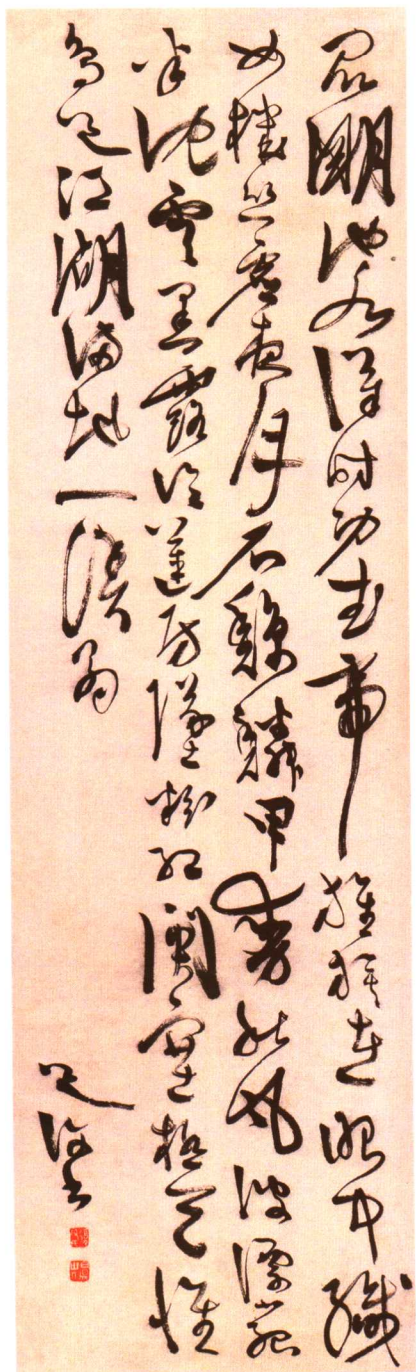 昆明池水漢時功武帝旌旗在眼中織
女機絲虛夜月石鯨鱗甲動秋風波漂菰
米沈雲黑露冷蓮房墜粉紅關塞極天惟
鳥道江湖滿地一漁翁
書